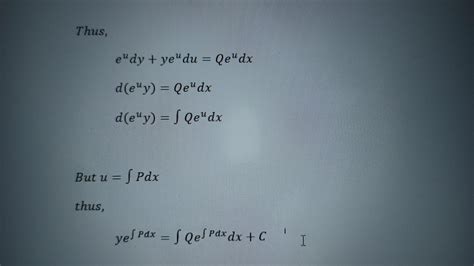 Thus,
eᵘdy + yeᵘdu = Qeᵘdx
d(eᵘy) = Qeᵘdx
d(eᵘy) = ∫ Qeᵘdx
But u = ∫ Pdx
thus,
ye^{∫ Pdx} = ∫ Qe^{∫ Pdx}dx + C